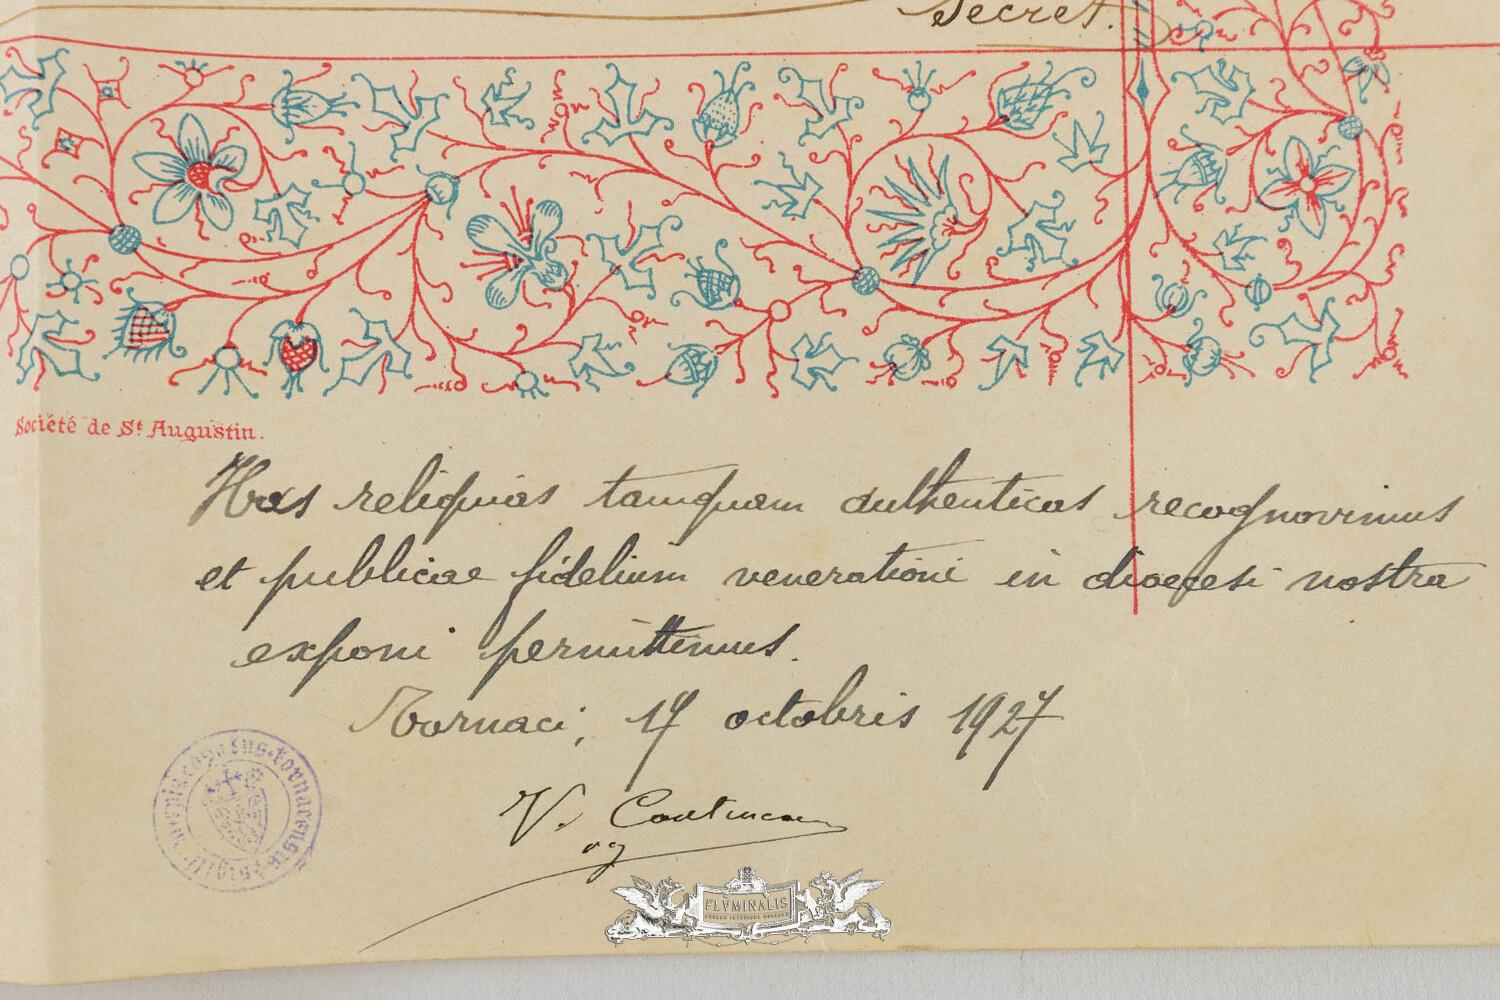 Secret.
Société de St Augustin.
Has reliquias tamquam authenticas recognovimus
et publicae fidelium venerationi in dioecesi nostra
exponi permittimus.
Tornaci, 17 octobris 1927
V. Cantineau
vg
episcopatus tornacensis sigill
FLVMINALIS